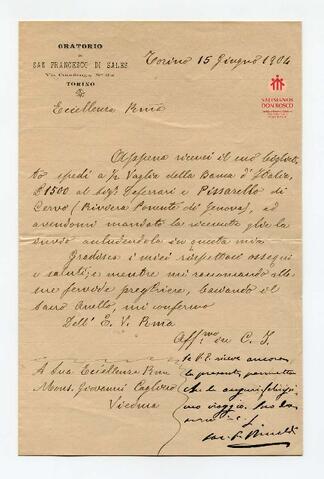 ORATORIO
DI
SAN FRANCESCO DI SALES
Via Cottolengo N. 32
TORINO
Torino 15 Giugno 1904
SALESIANOS
DON BOSCO
Eccellenza Rma
Appena ricevei il suo bigliet
to spedii a ½ Vaglia della Banca d'Italia,
₤ 1500 al Sigr Seferrari e Pissarello di
Cervo (Riviera Ponente di Genova), ed
avendomi mandato la ricevuta glie la
invio includendola in questa mia.
Gradisca i miei rispettosi ossequi
e saluti; e mentre mi raccomando alle
sue fervide preghiere, baciando il
Sacro Anello, mi confermo
Dell' E. V. Rma
Aff.mo in C. J.
A Sua Eccellenza Rma
Mons. Giovanni Cagliero
Viedma
Se V. E. riceve ancora
la presente, permetta
che le auguri
mo viaggio.
Rinaldi